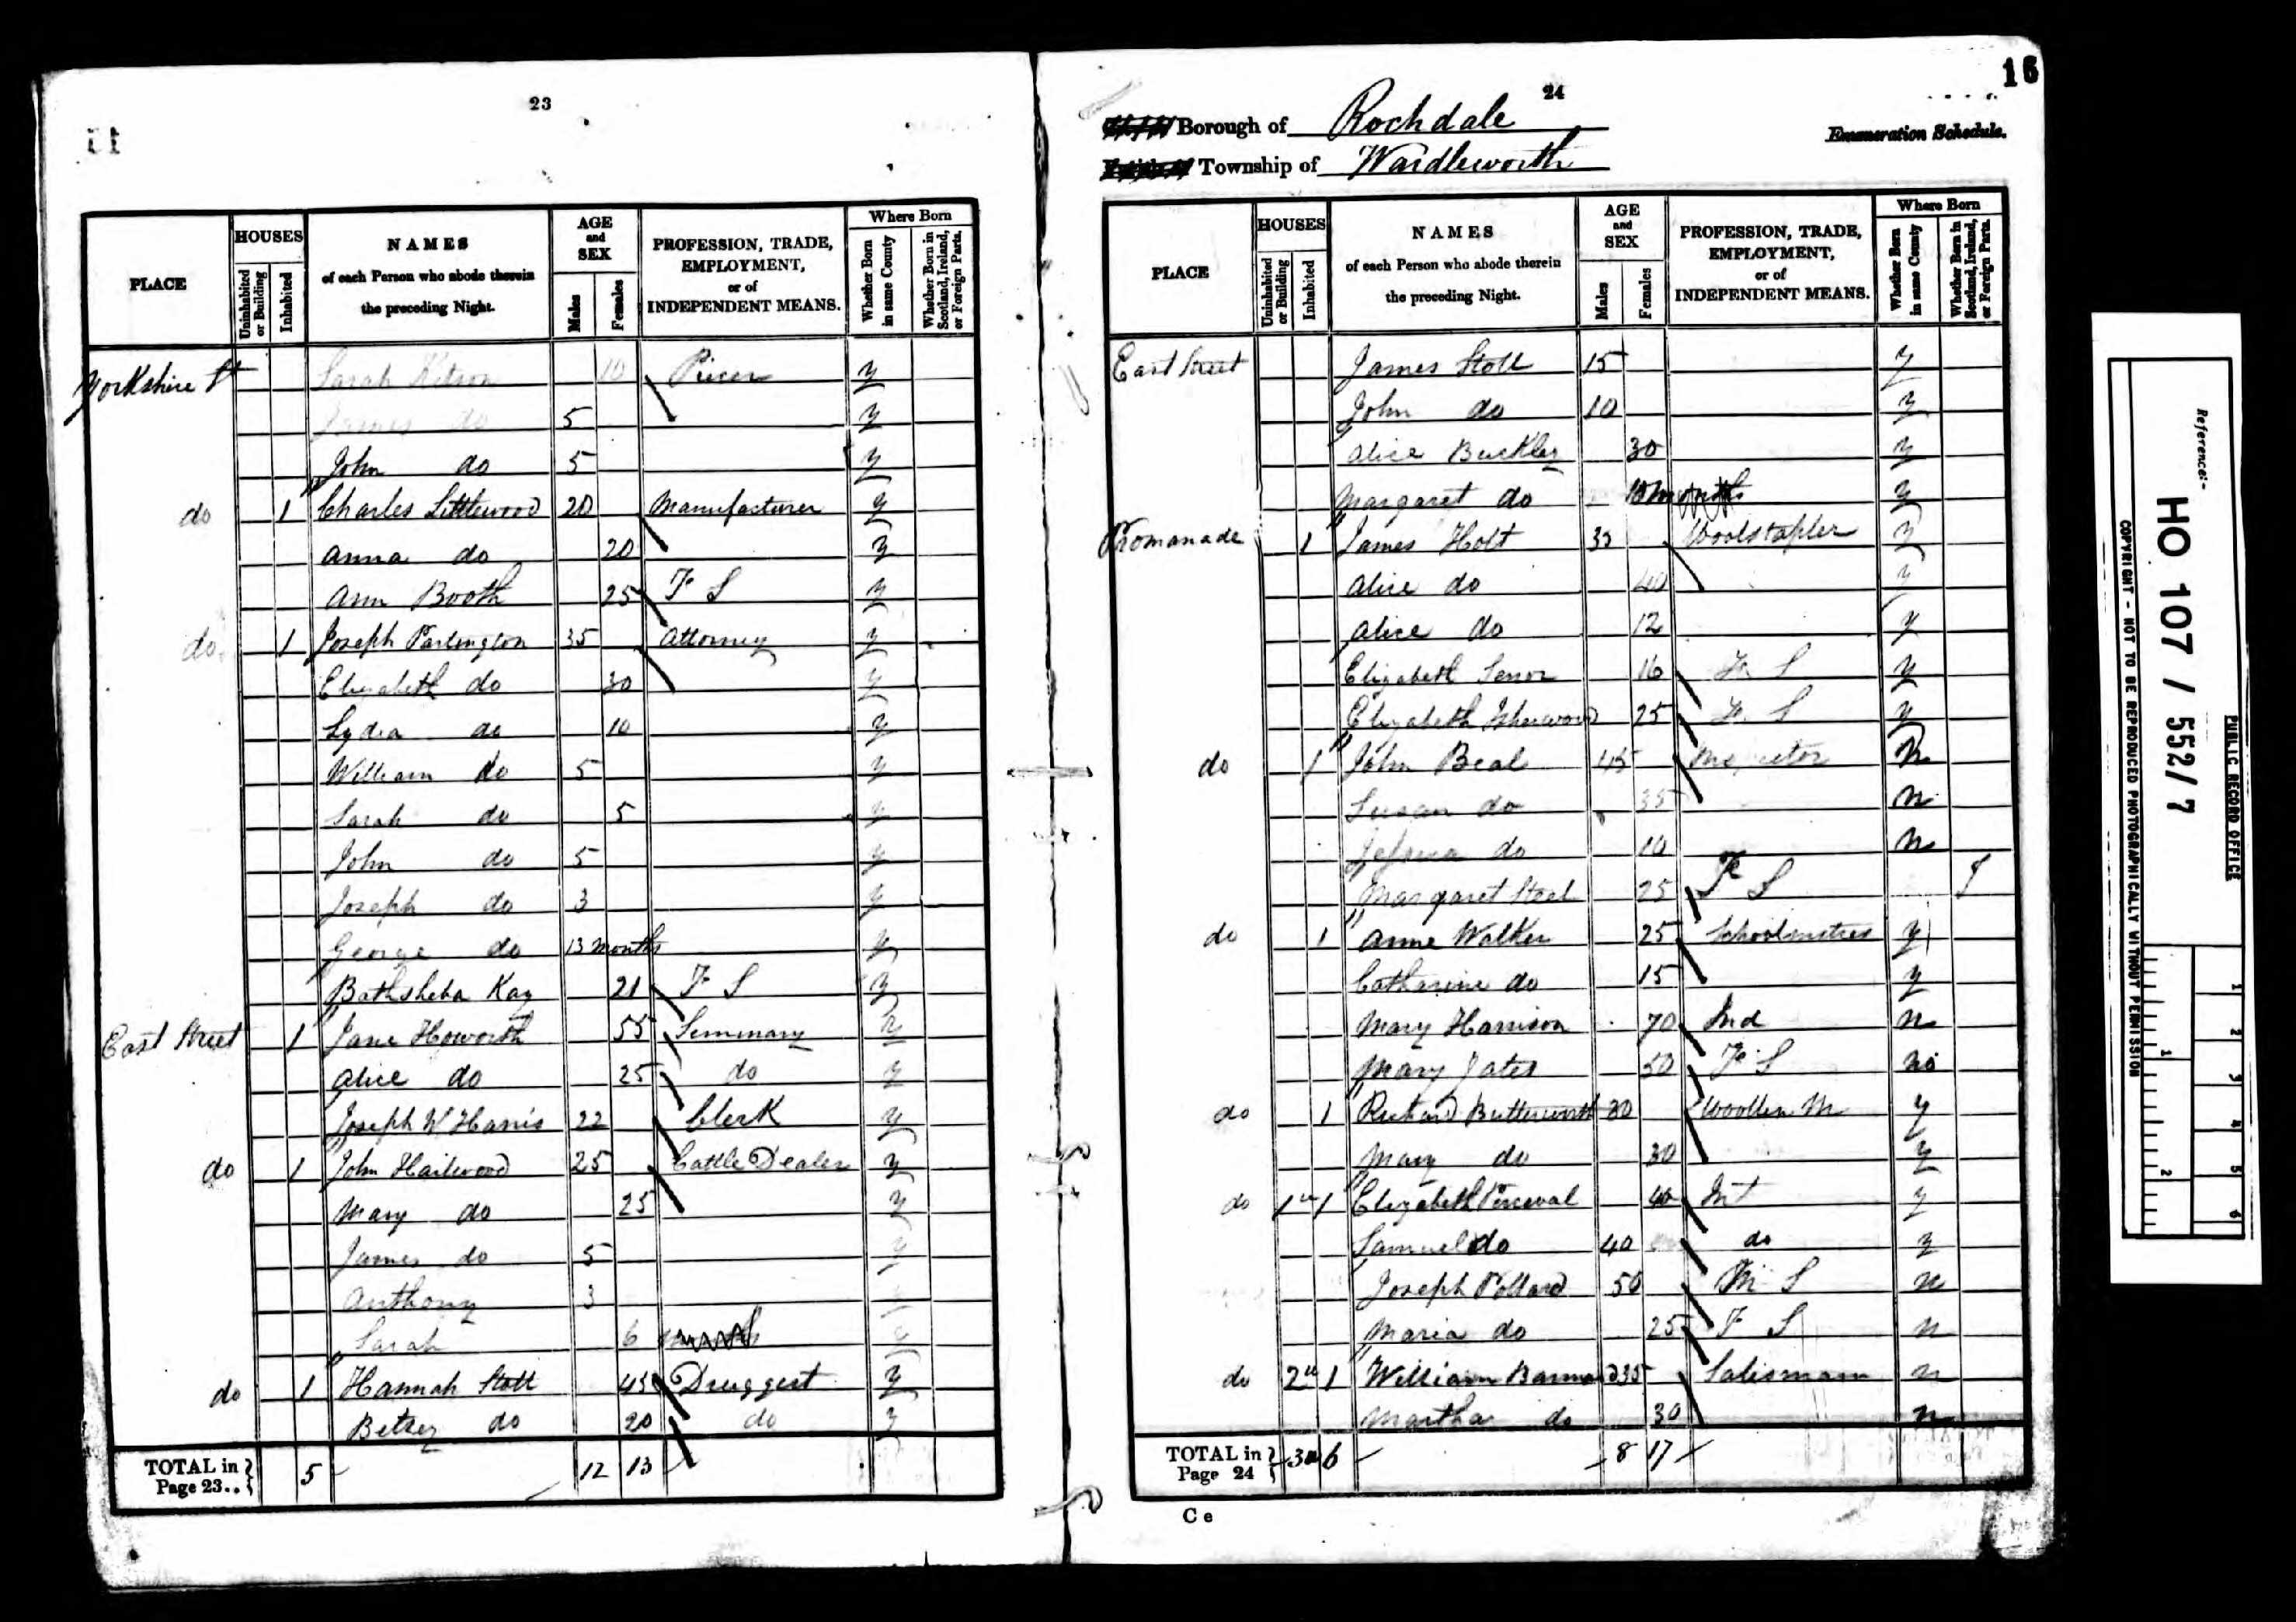 23
PLACE
HOUSES
Uninhabited or Building
Inhabited
NAMES
of each Person who abode therein
the preceding Night.
AGE
and
SEX
Males
Females
PROFESSION, TRADE,
EMPLOYMENT,
or of
INDEPENDENT MEANS.
Where Born
Whether Born in same County
Whether Born in Scotland, Ireland, or Foreign Parts.
Yorkshire St Sarah 10 Piecer y
James do 5 y
John do 5 y
do 1 Charles Littlewood 20 Manufacturer y
Anna do 20 y
Ann Booth 25 F S y
do 1 Joseph Partington 35 Attorney y
Elizabeth do 30 y
Lydia do 10 y
William do 5 y
Sarah do 5 y
John do 5 y
Joseph do 3 y
George do 13 months y
Bathsheba Kay 21 F S y
East Street 1 Jane Howorth 55 Seminary y
Alice do 25 do y
Joseph W Harris 22 Clerk y
do 1 John Hailwood 25 Cattle Dealer y
Mary do 25 y
James do 5 y
Anthony 3
Sarah 6
do 1 Hannah Stott 45 Druggest y
Betsey do 20 do y
TOTAL in Page 23.. 5 12 13
16
24
Borough of Rochdale
Township of Wardleworth
Enumeration Schedule.
PLACE
HOUSES
Uninhabited or Building
Inhabited
NAMES
of each Person who abode therein
the preceding Night.
AGE
and
SEX
Males
Females
PROFESSION, TRADE,
EMPLOYMENT,
or of
INDEPENDENT MEANS.
Where Born
Whether Born in same County
Whether Born in Scotland, Ireland, or Foreign Parts.
East Street James Stott 15 y
John do 10 y
Alice Buckley 30 y
Margaret do y
Promanade 1 James Holt 35 Woolstapler y
Alice do 40 y
Alice do 12 y
Elizabeth Senor 16 F S y
Elizabeth Isherwood 25 F S y
do 1 John Beal 45 n
Susan do 35 n
do 10 n
Margaret Steel 25 F S
do 1 Anne Walker 25 Schoolmistres y
Catharine do 15 y
Mary Harrison 70 Ind n
Mary Yates 50 F S no
do 1 Richard Butterworth 30 Woollen M y
Mary do 30 y
do 1u 1 Elizabeth Perceval 40 Int y
Samuel do 40 do y
Joseph Pollard 50 M S n
Maria do 25 F S n
do 2u 1 William 35 Salisman n
Martha do 30 n
TOTAL in Page 24 3u 6 8 17
C e
PUBLIC RECORD OFFICE
Reference:-
HO 107 / 552/7
COPYRIGHT - NOT TO BE REPRODUCED PHOTOGRAPHICALLY WITHOUT PERMISSION
1
2
3
4
5
6
1
2